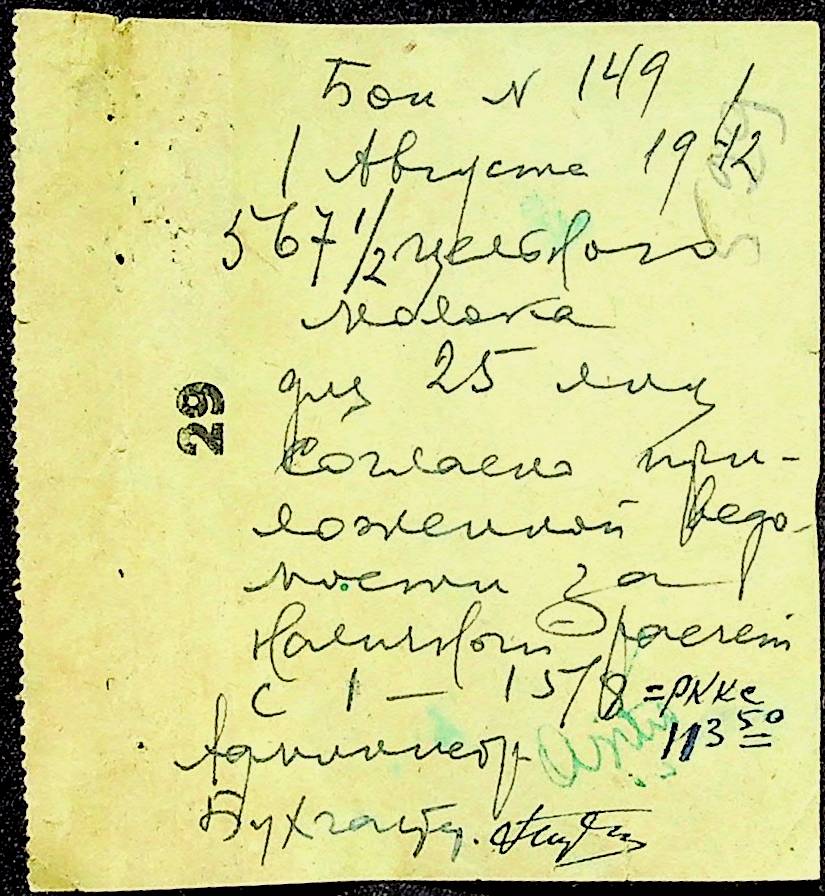 Бон N 149
1 Августа 1942
567 1/2 цельного
молока
для 25 лиц
Согласно при-
ложенной ведо-
мости за
наличном расчет
с 1 — 15/8 = РККс
113 50
Администр.
Бухгалтер.
29